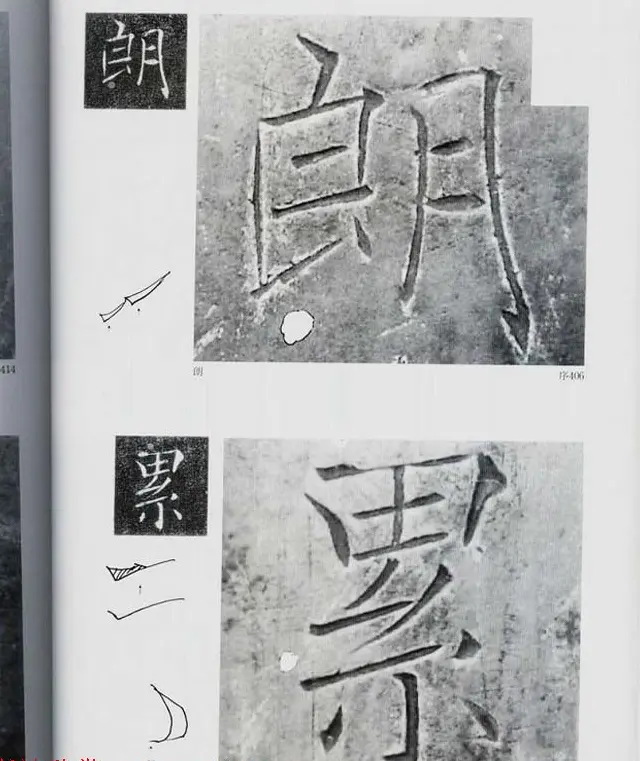 朗
朗
414
朗
序406
累
累